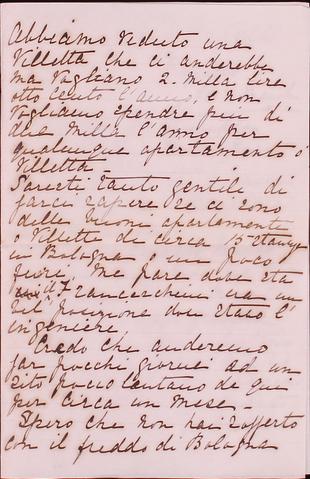 Abbiamo veduto una
Villetta che ci anderebbe
ma vogliano 2. milla lire
otto cento l'anno, e non
vogliamo spendere piu di
due milla l'anno per
qualunque apartamento o
Villetta
Sareste tanto gentile di
farci sapere se ci sono
delle buoni apartamente
o Villette di circa 5 stanze
in Bologna o un poco
fuori, Me pare dove sta
Franceschini era un
bel posizione dove stava l'
ingeniere,
Credo che anderemo
far pocchi giorni ad un
sito poco lontano de qui
per circa un mese -
Spero che non hai sofferto
con il freddo di Bologna